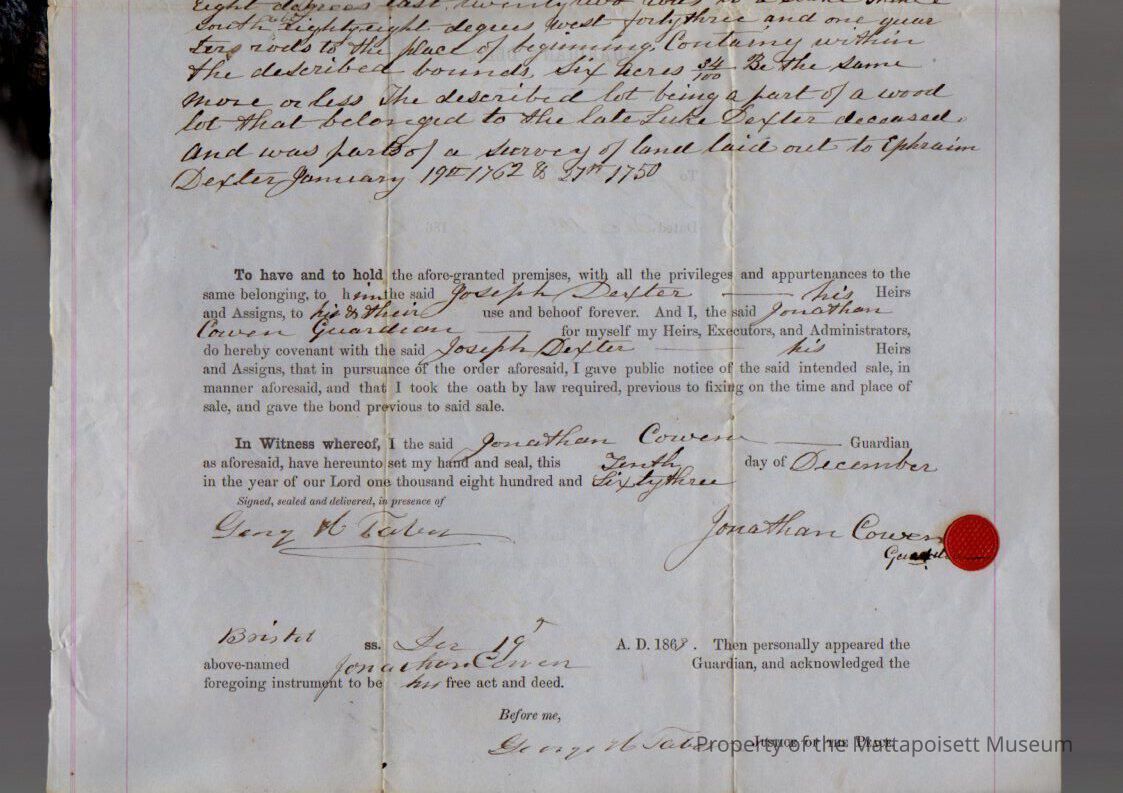 eight degrees east, twenty two rods to a stake thence
south eighty eight degrees west forty three and one quar
ters rods to the place of beginning. Containg within
the described bounds, six acres 34/100 Be the same
more or less The described lot being a part of a wood
lot that belonged to the late Luke Dexter deceased.
and was part of a survey of land laid out to Ephraim
Dexter January 19th 1762 & 27th 1750
To have and to hold the afore-granted premises, with all the privileges and appurtenances to the
same belonging, to him the said Joseph Dexter his Heirs
and Assigns, to his & their use and behoof forever. And I, the said Jonathan
Cowen Guardian for myself my Heirs, Executors, and Administrators,
do hereby covenant with the said Joseph Dexter his Heirs
and Assigns, that in pursuance of the order aforesaid, I gave public notice of the said intended sale, in
manner aforesaid, and that I took the oath by law required, previous to fixing on the time and place of
sale, and gave the bond previous to said sale.
In Witness whereof, I the said Jonathan Cowen Guardian
as aforesaid, have hereunto set my hand and seal, this Tenth day of December
in the year of our Lord one thousand eight hundred and Sixtythree
Signed, sealed and delivered, in presence of
H Taber Jonathan Cowen
Bristol ss. Dec 19 A. D. 1863. Then personally appeared the
above-named Jonathan Cowen Guardian, and acknowledged the
foregoing instrument to be his free act and deed.
Before me,
George H Taber Justice of the Peace
Property of the Mattapoisett Museum